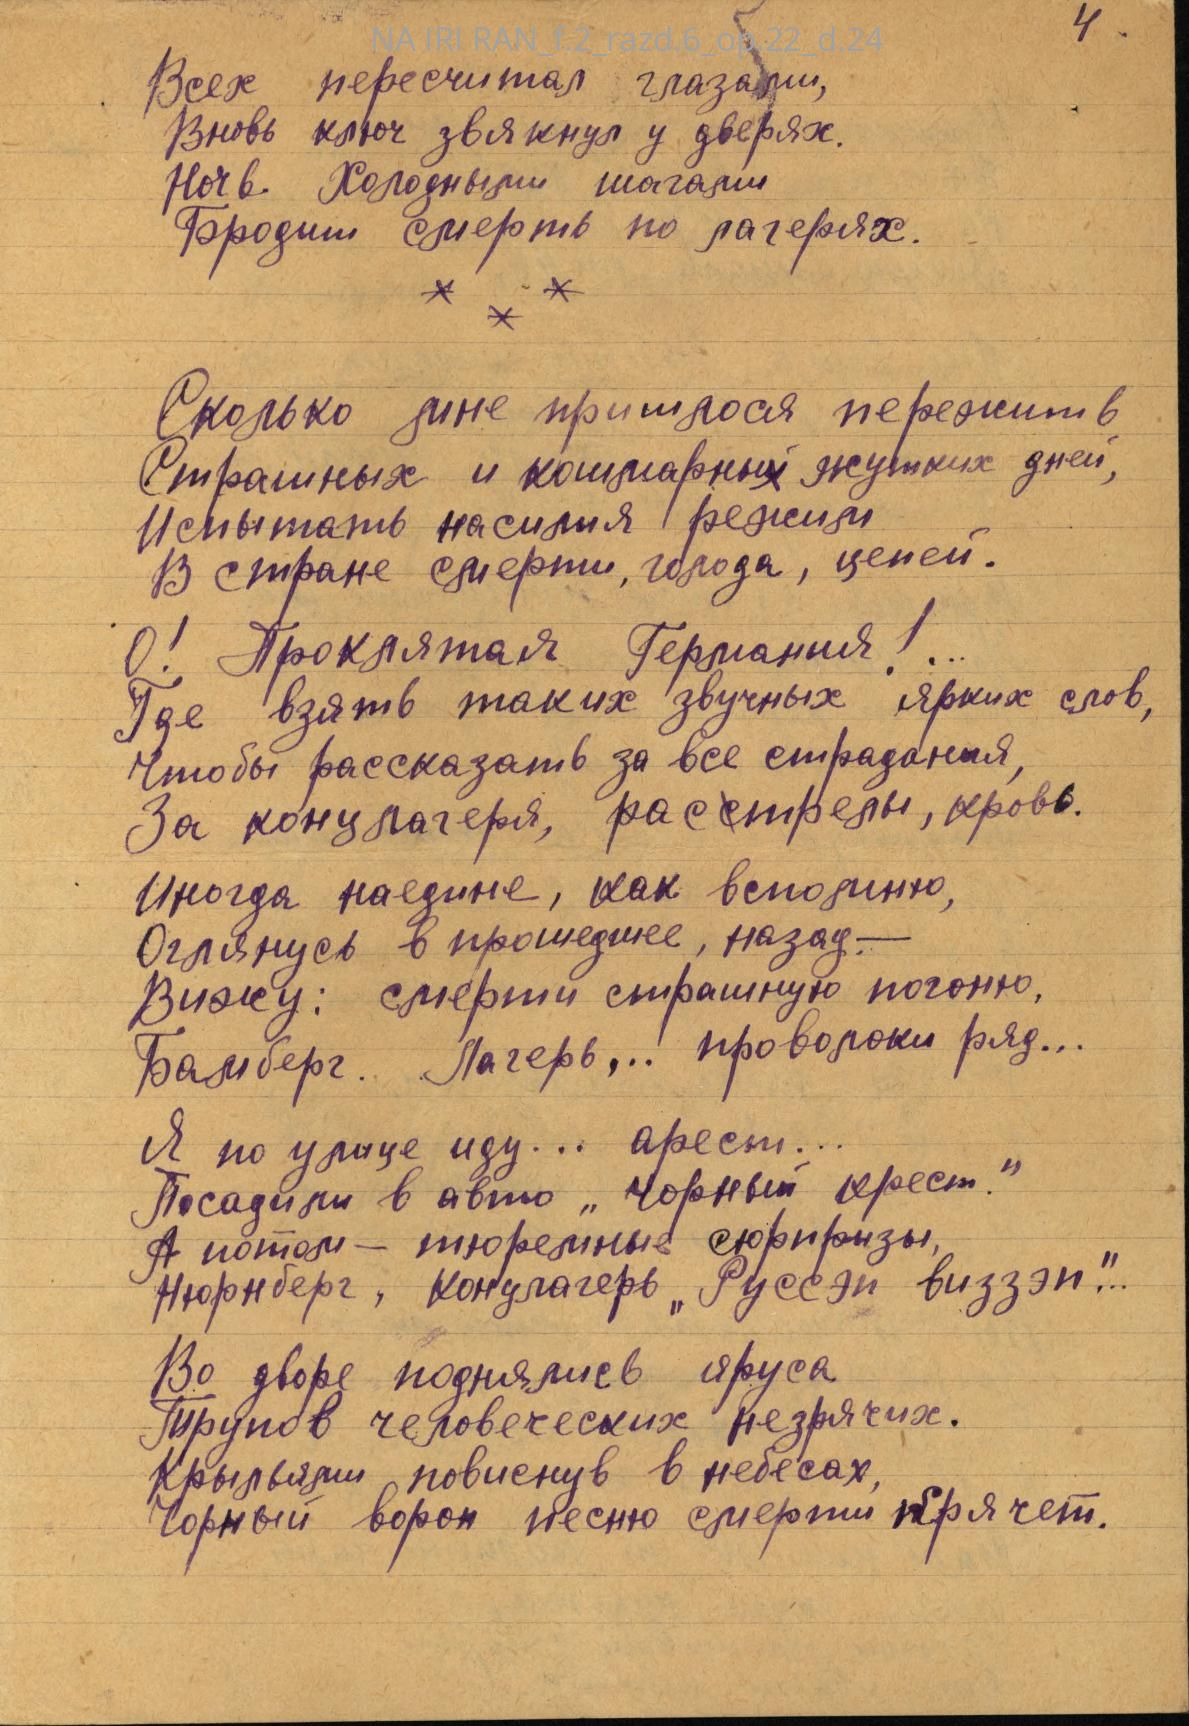 NA IRI RAN_f.2_razd.6_op.22_d.24
4.
Всех пересчитал глазами,
Вновь ключ звякнул у дверях.
Ночь. Холодными шагами
Бродит смерть по лагерях.
* * *
Сколько мне пришлося пережить
Страшных и кошмарных жутких дней,
Испытать насилия режим
В стране смерти, голода, цепей.
О! Проклятая Германия!...
Где взять таких звучных ярких слов,
Чтобы рассказать за все страдания,
За концлагеря, расстрелы, кровь.
Иногда наедине, как вспомню,
Оглянусь в прошедшее, назад —
Вижу: смерти страшную погоню,
Бамберг. Лагерь,... проволоки ряд...
Я по улице иду... арест...
Посадили в авто „Чорный крест."
А потом — тюремные сюрпризы,
Нюрнберг, концлагерь „Руссэн виззэн"...
Во дворе поднялись яруса
Трупов человеческих незрячих.
Крыльями повиснув в небесах,
Чорный ворон песню смерти прячет.